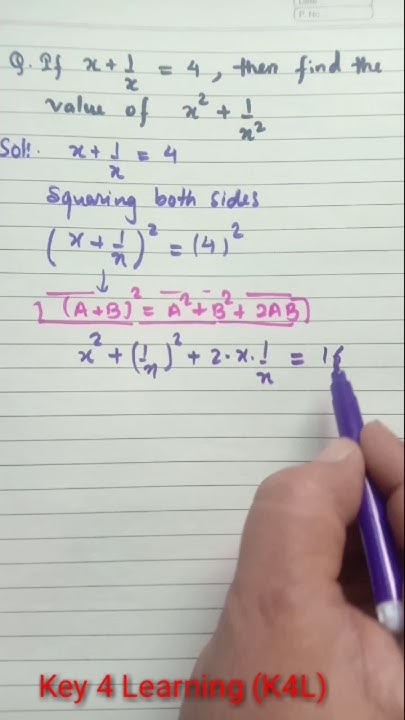 P. No.
Q. If x + 1/x = 4, then find the
value of x² + 1/x²
Sol:. x + 1/x = 4
Squaring both sides
(x + 1/x)² = (4)²
↓
(A+B)² = A² + B² + 2AB
x² + (1/x)² + 2·x·1/x = 16
Key 4 Learning (K4L)